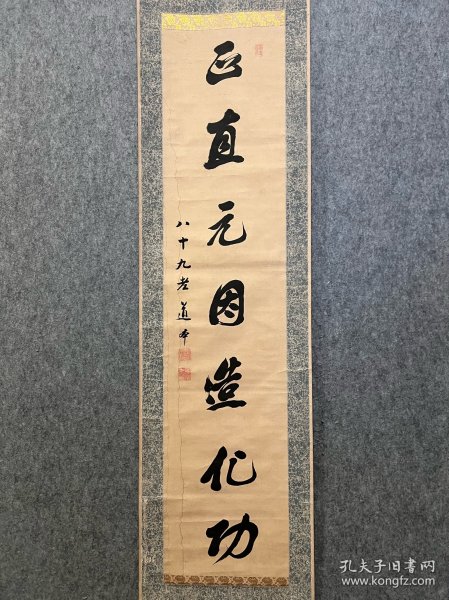 正直元因造化功
八十九老道本
孔夫子旧书网
www.kongfz.com